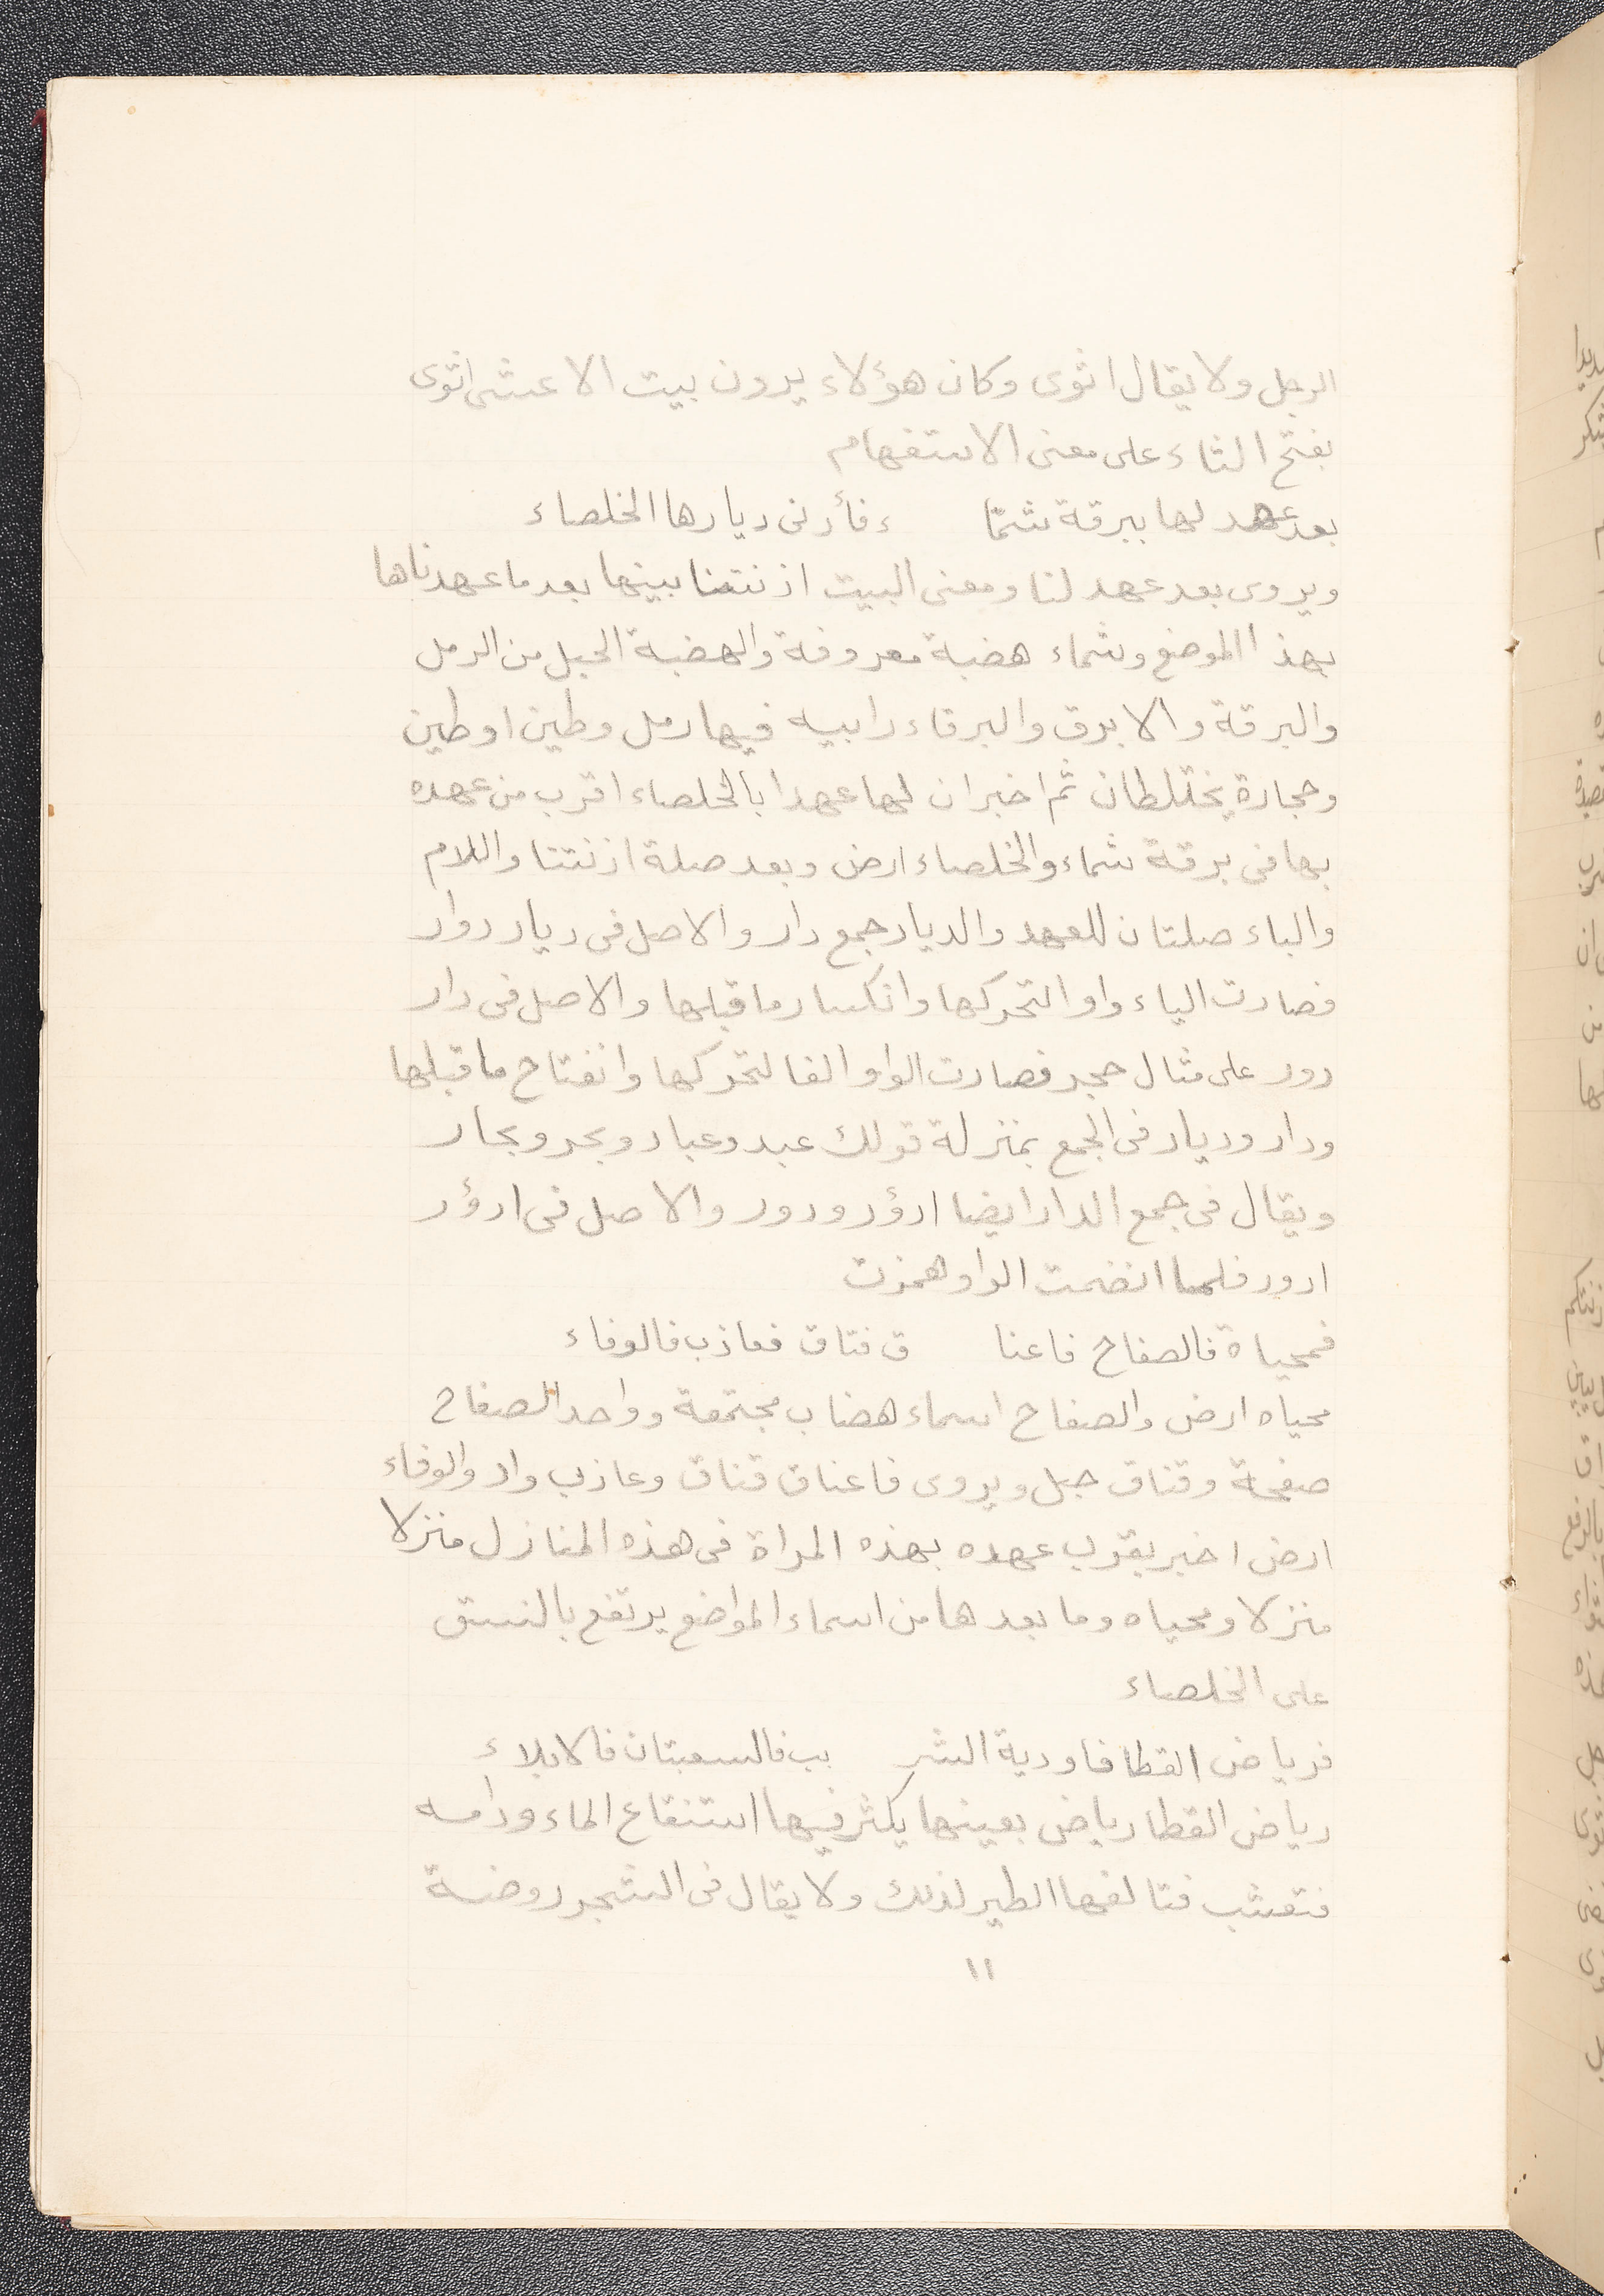 الرجل ولا يقال اثوى وكان هؤلاء يردون بيت الاعشى اثوى
بفتح الثاء على معنى الاستفهام
بعد عهد لها ببرقة شمّا ء فأدنى ديارها الخلصاء
ويروى بعد عهد لنا ومعنى البيت اذنتنا ببينها بعد ما عهدناها
بهذا الموضع وشماء هضبة معروفة والهضبة الجبل من الرمل
والبرقة والابرق والبرقاء رابيه فيها رمل وطين او طين
وحجارة يختلطان ثم اخبر ان لها عهدا بالخلصاء اقرب من عهده
بها فى برقة شماء والخلصاء ارض وبعد صلة اذنتنا واللام
والباء صلتان للعهد والديار جمع دار والاصل فى ديار دوار
فصارت الياء واوا لتحركها وانكسار ما قبلها والاصل فى دار
دور على مثال حجر فصارت الواو الفا لتحركها وانفتاح ما قبلها
ودار وديار فى الجمع بمنزلة قولك عبد وعباد وبحر وبحار
ويقال فى جمع الدار ايضا ادؤر ودور والاصل فى ادؤر
ادور فلما انضمت الواو همزت
فمحياة فالصفاح فاعنا ق فتاق فعاذب فالوفاء
محياه ارض والصفاح اسماء هضاب مجتمعة وواحد الصفاح
صفحة وقناق جبل ويروى فاعناق قناق وعاذب واد والوفاء
ارض اخبر بقرب عهده بهذه المراة فى هذه المنازل منزلا
منزلا ومحياه وما بعدها من اسماء المواضع يرتفع بالنسق
على الخلصاء
فرياض القطا فاودية الشر بب فالسعبتان فالابلاء
رياض القطا رياض بعينها يكثر فيها استنقاع الماء ودامه
فتعشب فتالفها الطير لذلك ولا يقال فى الشجر روضة
١١